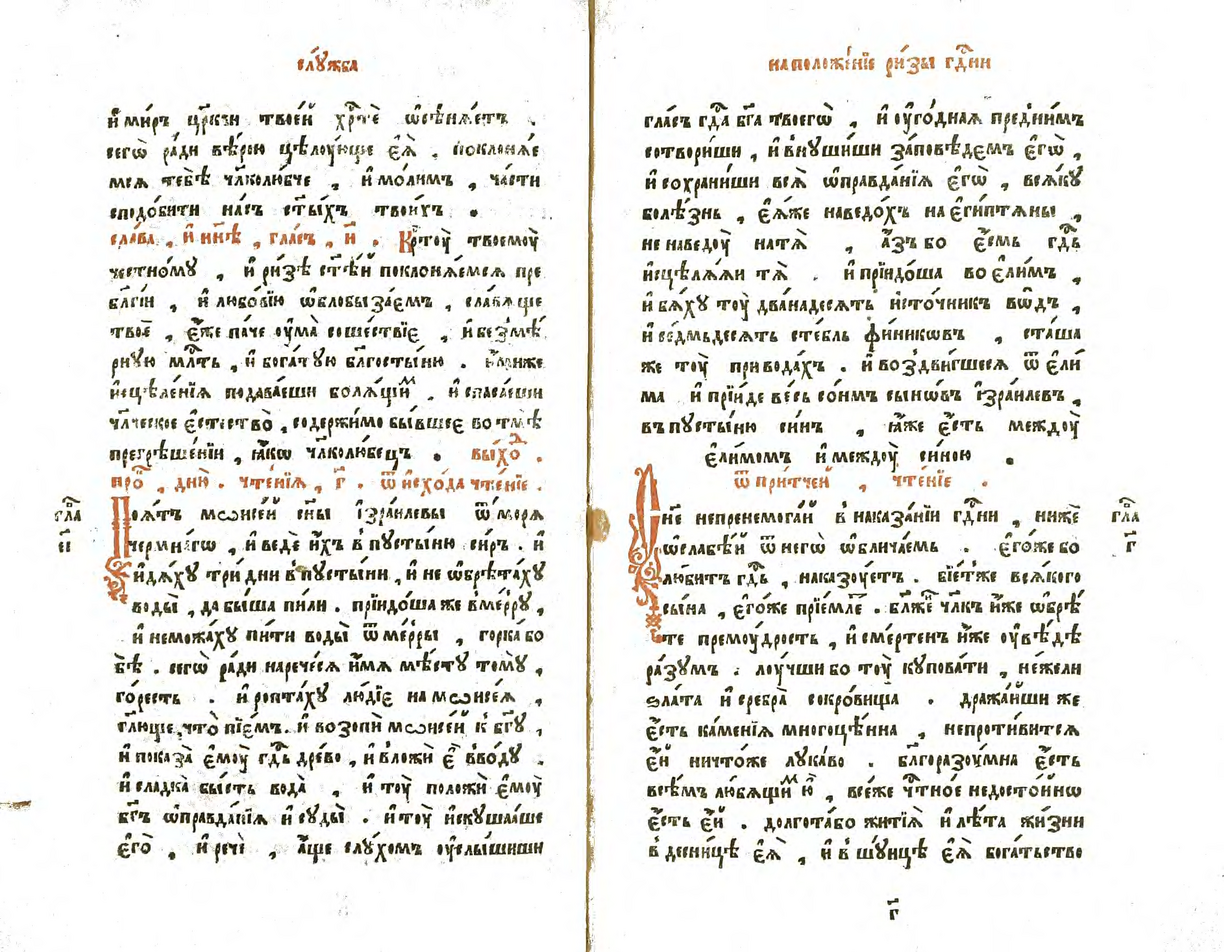 слу́жба
и҆ миръ цр҃кви твое́й хрⷭ҇тѐ ѡ҆сѣнѧ́етъ .
сегѡ̀ ра́ди вѣ́рою цѣлоу́юще є҆ѧ̀ , поклонѧ́е
мсѧ тебѣ̀ чл҃колю́бче , и҆ мо́лимъ , ча́сти
сподо́бити на́съ ст҃ы́хъ твои́хъ .
сла́ва , и҆ ны́нѣ , гла́съ , и҃ . Крⷭ҇тоу̀ твоемоу̀
честно́му , и҆ ри́зѣ ст҃ѣ́й поклонѧ́емсѧ пре
бл҃гі́й , и҆ любо́вїю ѡ҆блобыза́емъ , сла́вѧще
твоѐ , є҆́же па́че оу҆ма̀ соше́ствїе , и҆ безмѣ́
рную млⷭ҇ть , и҆ бога́тую бл҃госты́ню . и҆́миже
и҆сцѣле́нїѧ подава́еши болѧ́щиⷨ . и҆ спаса́еши
чл҃ческое є҆стество̀ , содержи́мо бы́вшее во тмѣ̀
прегрѣше́нїи , ꙗ҆́кѡ чл҃колю́бецъ . вы́хоⷣ .
проⷦ҇ , дню̀ . чте́нїѧ , г҃ . ѿ и҆схо́да чте́нїе .
гла
є҃і
Поѧ́тъ мѡѷсе́й сн҃ы і҆зра́илевы ѿ мо́рѧ
чермна́гѡ , и҆ ведѐ и҆̀хъ в пусты́ню си́ръ . и҆
и҆дѧ́ху три дни в пусты́ни , и҆ не ѡ҆брѣта́ху
воды̀ , да бы́ша пи́ли . прїидо́ша же в ме́рру ,
и҆ неможа́ху пи́ти воды̀ ѿ ме́рры , горка́ бо
бѣ̀ . сегѡ̀ ра́ди нарече́сѧ и҆́мѧ мѣ́сту тому̀ ,
го́ресть . и҆ ропта́ху лю́дїе на мѡѷсе́ѧ ,
гл҃юще , что̀ пїе́мъ . и҆ возопѝ мѡѷсе́й к бг҃у ,
и҆ показа̀ є҆моу̀ гдⷭ҇ь дре́во , и҆ вложѝ є҆̀ в во́ду .
и҆ сладка̀ бы́сть вода̀ , и҆ тоу̀ положѝ є҆моу̀
бг҃ъ ѡ҆правда́нїѧ и҆ суды̀ . и҆ тоу̀ и҆скуша́ше
є҆го̀ , и҆ речѐ , а҆́ще слу́хомъ оу҆слы́шиши
на положе́нїе ри́зы гдⷭ҇ни
гла́съ гдⷭ҇а бг҃а твоегѡ̀ , и҆ оу҆го́дная пред ни́мъ
сотвори́ши , и҆ внуши́ши за́повѣдемъ є҆гѡ̀ ,
и҆ сохрани́ши всѧ̀ ѡ҆правда́нїѧ є҆гѡ̀ , всѧ́ку
болѣ́знь , є҆ѧ́же наведо́хъ на є҆гѵптѧ́ны ,
не наведоу̀ на тѧ̀ , а҆́зъ бо є҆́смь гдⷭ҇ь
и҆сцѣлѧ́ѧи тѧ̀ . и҆ прїидо́ша во є҆ли́мъ ,
и҆ бѧ́ху тоу̀ двана́десять и҆сто́чникъ во́дъ ,
и҆ се́дмьдесятъ сте́бль фи́никѡвъ , ста́ша
же тоу̀ при вода́хъ . и҆ воздви́гшеся ѿ є҆ли
ма и҆ прїи́де ве́сь со́нмъ сынѡ́въ і҆зра́илевъ ,
въ пусты́ню си́нъ , ꙗ҆́же є҆́сть междоу̀
є҆ли́момъ и҆ междоу̀ си́ною .
ѿ при́тчей , чте́нїе .
гла
г҃
Сы́не не пренемога́й в наказа́нїи гдⷭ҇ни , ниже́
ѡ҆слабѣ́й ѿ негѡ̀ ѡ҆блича́емь . є҆го́же бо
лю́битъ гдⷭ҇ь , наказоу́етъ . бїе́тже всѧ́кого
сы́на , є҆го́же прїе́млеⷮ . бл҃же́нъ чл҃къ и҆́же ѡ҆брѣ́
те премоу́дрость , и҆ сме́ртенъ и҆́же оу҆вѣ́дѣ
ра́зумъ . лоу́чши бо тоу̀ купова́ти , не́жели
зла́та и҆ сребра̀ сокро́вища . дража́йши же
є҆́сть ка́менїѧ многоцѣ́нна , непроти́витсѧ
є҆́й ничто́же лука́во . бл҃горазоу́мна є҆́сть
всѣ́мъ лю́бѧщиⷨ ю҆̀ , все́же чⷭ҇тное недосто́йнѡ
є҆́сть є҆́й . долгота́ бо житїѧ̀ и҆ лѣ́та жи́зни
в десни́цѣ є҆ѧ̀ , и҆ в шу́ицѣ є҆ѧ̀ бога́тьство
г҃